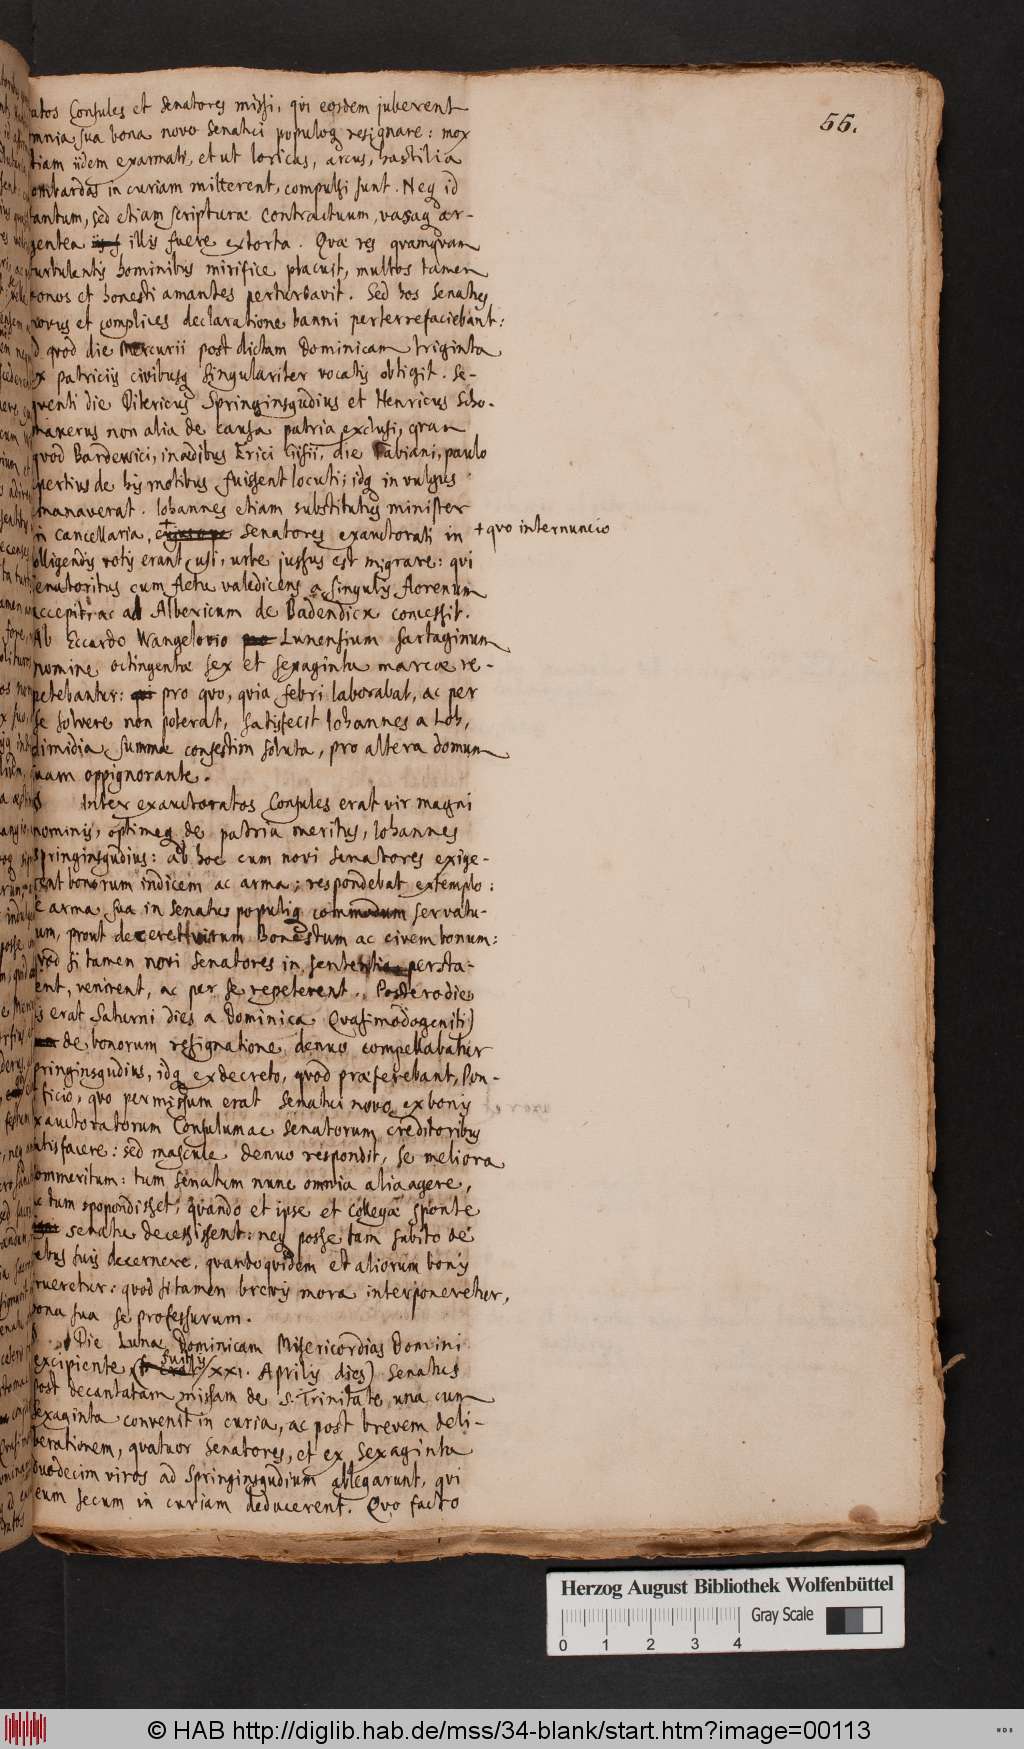 55.
atos Consules et Senatores missi, qui eosdem juberent
mnia sua bona novo Senatui populoq resignare: mox
tiam iidem exarmati, et ut loricas, arcus, hastilia
ombardas in curiam mitterent, compulsi sunt. Neq id
tantum, sed etiam scripturæ contractuum, vasaq ar-
gentea illis fuere extorta. Quæ res quamquam
turbulentis hominibus mirifice placuit, multos tamen
bonos et honesti amantes perturbavit. Sed hos Senatus
novus et complices declaratione banni perterrefaciebant:
d quod die Mercurii post dictam Dominicam triginta
ex patriciis civibusq singulariter vocatis obtigit. Se-
quenti die Ditericus Springinsgudius et Henricus Scho-
makerus non alia de causa patria exclusi, quam
quod Bardewici, in ædibus Erici Gisii, die Fabiani, paulo
apertius de his motibus fuissent locuti; idq in vulgus
manaverat. Iohannes etiam substitutus minister
in cancellaria, + Senatores exauctorati in
+ quo internuncio
olligendis votis erant usi, urbe jussus est migrare: qui
senatoribus cum fletu valedicens a singulis florenum
accepit: ac ad Albericum de Badendick concessit.
Ab Eccardo Wangelovio Lunensium Sartaginum
nomine octingentæ sex et sexaginta marcæ re-
petebantur: pro quo, quia febri laborabat, ac per
se solvere non poterat, satisfecit Iohannes a Loh,
dimidia summæ confestim soluta, pro altera domum
suam oppignorante.
Inter exauctoratos Consules erat vir magni
nominis, optimeq de patria meritus, Iohannes
Springinsgudius: ab hoc cum novi Senatores exige-
rent bonorum indicem ac arma; respondebat extemplo:
se arma sua in Senatus populiq commodum servatu-
rum, prout deceret virum honestum ac civem bonum:
quod si tamen novi Senatores in sententia persta-
rent, venirent, ac per se repeterent. Postero die
is erat Saturni dies a Dominica Quasimodogeniti)
de bonorum resignatione denuo compellabatur
Springinsgudius, idq ex decreto, quod præferebant, Pon-
tificio, quo permissum erat Senatui novo ex bonis
exauctoratorum Consulum ac Senatorum creditoribus
satisfacere: sed mascule denuo respondit, se meliora
commeritum: tum Senatum nunc omnia alia agere,
ac tum spopondisset, quando et ipse et collegæ sponte
senatu decessissent: neq posse tam subito de
rebus suis decernere, quandoquidem et aliorum bonis
frueretur: quod si tamen brevis mora interponeretur,
bona sua se professurum.
Die Lunæ Dominicam Misericordias Domini
excipiente (fuitq XXI. Aprilis dies) Senatus
post decantatam missam de S. Trinitate una cum
sexaginta convenit in curia, ac post brevem deli-
berationem, quatuor Senatores, et ex Sexaginta
duodecim viros ad Springinsgudium ablegarunt, qui
eum secum in curiam deducerent. Quo facto
Herzog August Bibliothek Wolfenbüttel
Gray Scale
0 1 2 3 4
© HAB http://diglib.hab.de/mss/34-blank/start.htm?image=00113